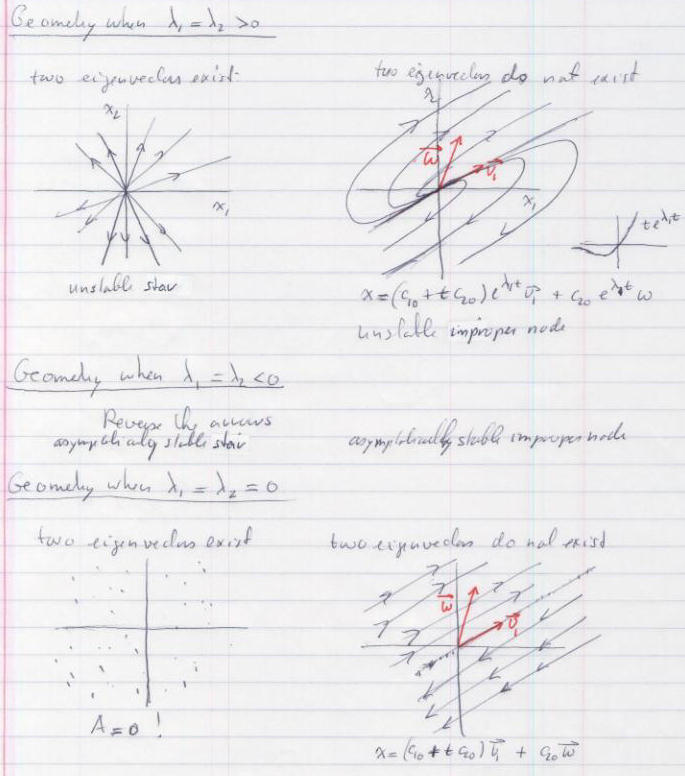 Geometry when λ₁ = λ₂ > 0
two eigenvectors exist
two eigenvectors do not exist
x₂
x₁
unstable star
x₂
w⃗
v⃗₁
x₁
t e^{λ₁t}
x = (c₁₀ + t c₂₀) e^{λ₁t} v⃗₁ + c₂₀ e^{λ₁t} w
unstable improper node
Geometry when λ₁ = λ₂ < 0
Reverse the arrows
asymptotically stable star
asymptotically stable improper node
Geometry when λ₁ = λ₂ = 0
two eigenvectors exist
two eigenvectors do not exist
w⃗
v⃗₁
A = 0 !
x = (c₁₀ + t c₂₀) v⃗₁ + c₂₀ w⃗